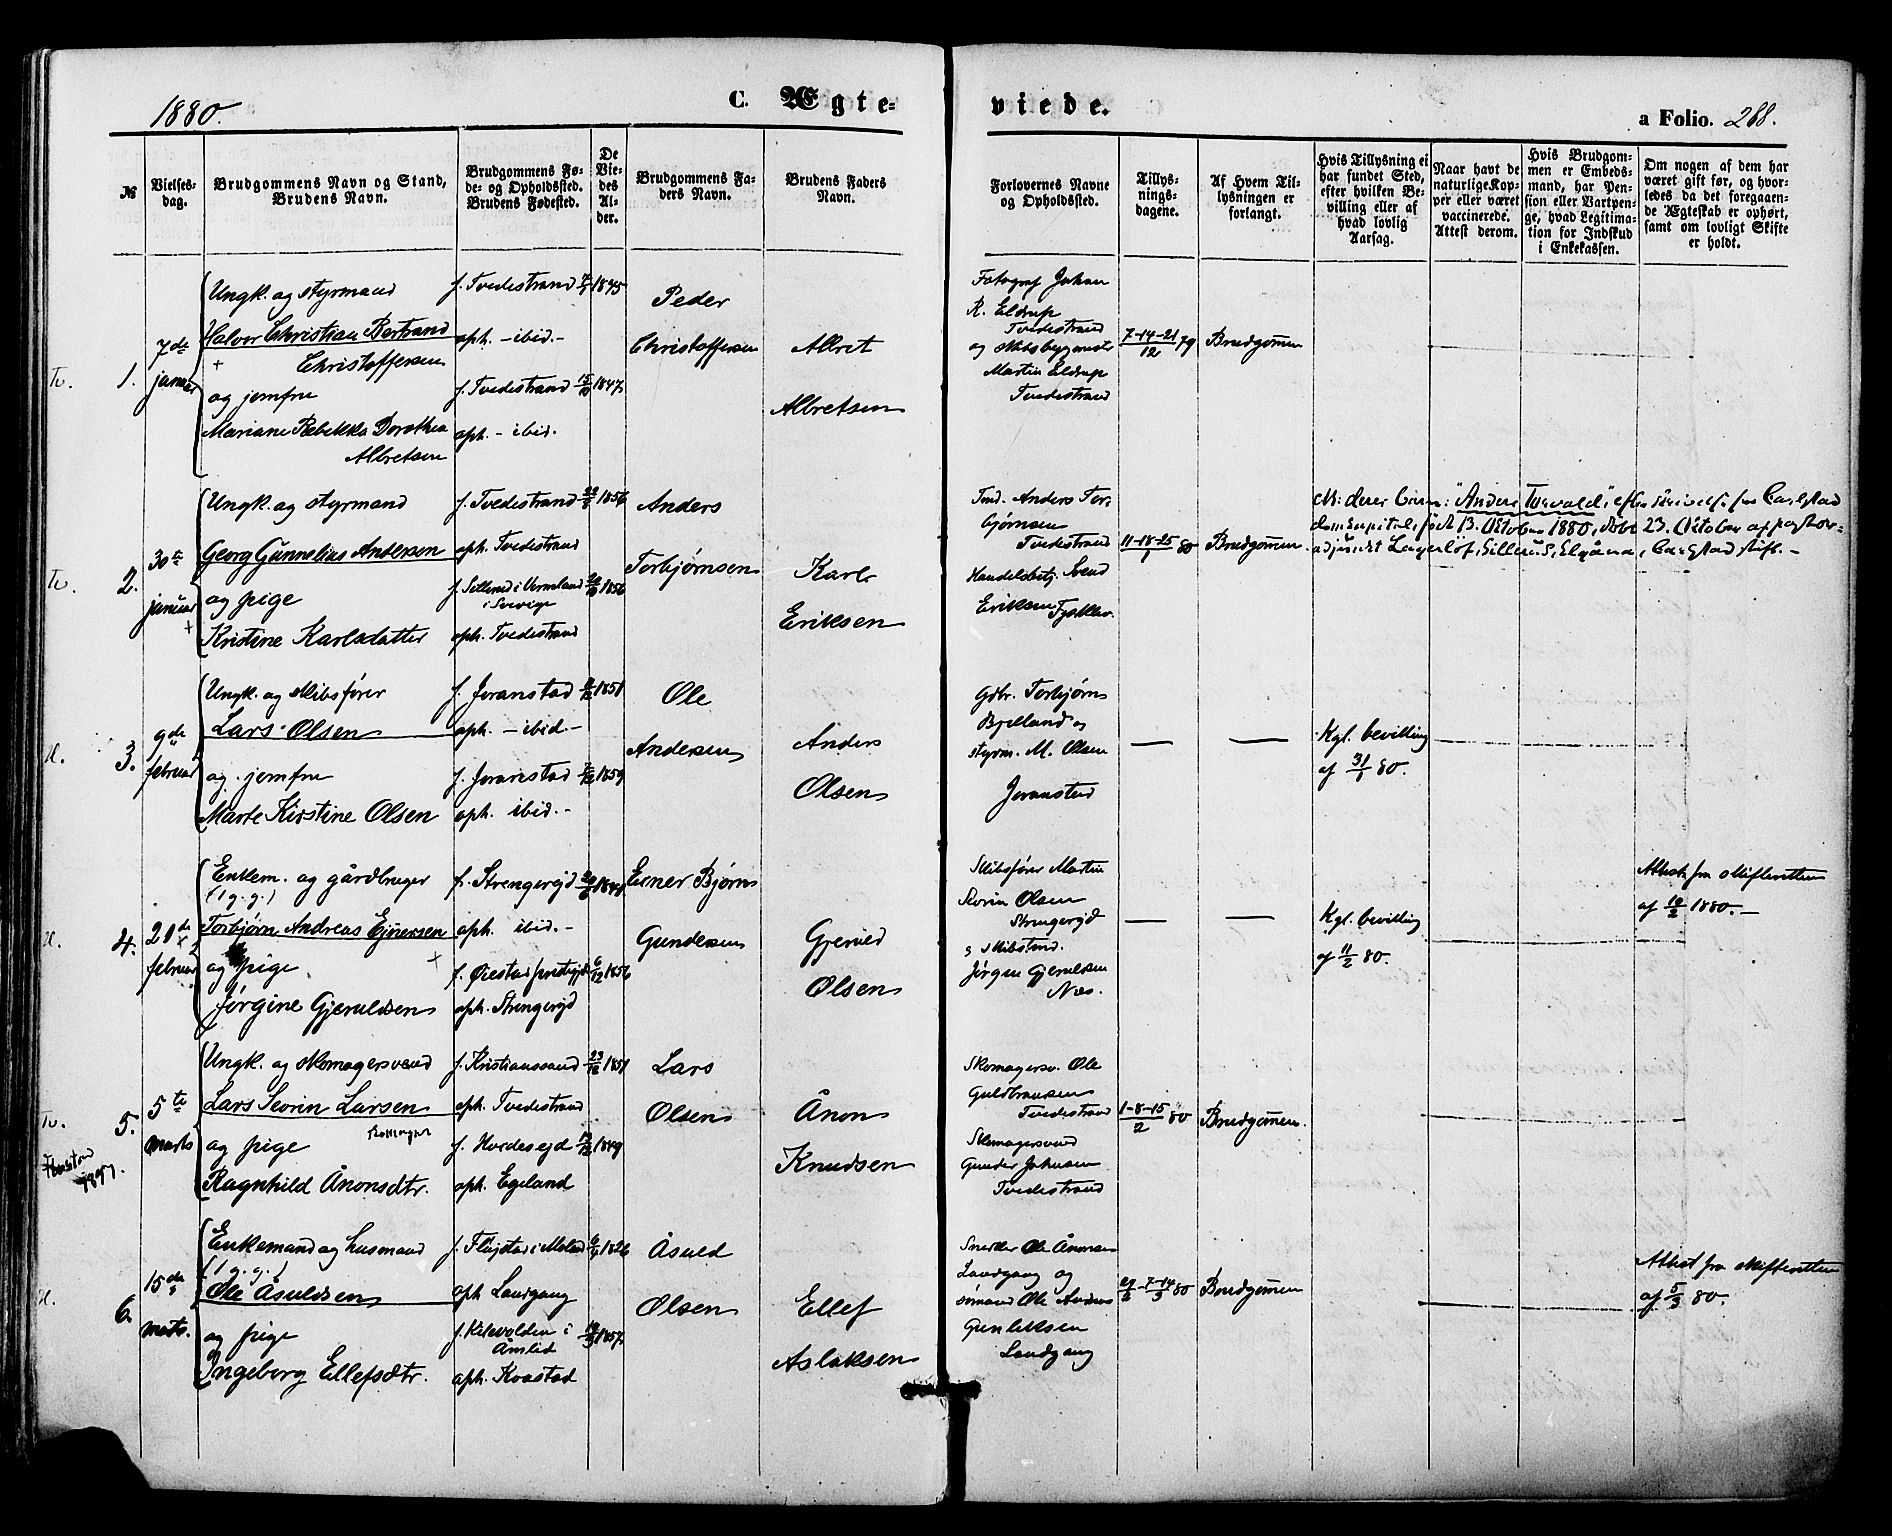 1880.
C. Ægte-
viede.
a Folio. 268.
№
Vielses-
dag.
Brudgommens Navn og Stand,
Brudens Navn.
Brudgommens Fø-
de- og Opholdssted.
Brudens Fødested.
De
Vie-
des
Al-
der.
Brudgommens Fa-
ders Navn.
Brudens Faders
Navn.
Forlovernes Navne
og Opholdssted.
Tillys-
nings-
dagene.
Af Hvem Til-
lysningen er
forlangt.
Hvis Tillysning ei
har fundet Sted,
efter hvilken Be-
villing eller af
hvad lovlig
Aarsag.
Naar havt de
naturlige Kop-
per eller været
vaccinerede.
Attest derom.
Hvis Brudgom-
men er Embeds-
mand, har Pen-
sion eller Vartpen-
ge, hvad Legitima-
tion for Indskud
i Enkekassen.
Om nogen af dem har
været gift før, og hvor-
ledes da det foregaaen-
de Ægteskab er ophørt,
samt om lovligt Skifte
er holdt.
Tv. 1.
7de
januar
Ungk. og styrmand
Halvor Christian Bertrand
Christoffersen
og jomfru
Mariane Rebekka Dorothea
Albretsen
f. Tvedestrand 1845
oph. - ibid. -
f. Tvedestrand 1847
oph. - ibid.
Peder
Christoffersen
Albret
Albretsen
Fotograf Johan
R. Eldrup
Tvedestrand
og Skibsbygmester
Martin Eldrup
Tvedestrand
7-14-21/12 79
Brudgommen
Tv. 2.
30te
januar
Ungk. og styrmand
Georg Gunnelius Andersen
og pige
Kristine Karlsdatter
f. Tvedestrand 1856
oph. Tvedestrand
f. Sillerud i Vermland 1856
i Sverige
oph. Tvedestrand
Anders
Torbjørnsen
Karl
Eriksen
Tmd. Anders Tor-
bjørnsen
Tvedestrand
Handelsbetj. Svend
Eriksen
11-18-25/1 80
Brudgommen
"Anders Torvald"
domkapitel, født 13. Oktober 1880, døbt 23. Oktober af pastor-
adjunct Lagerlöf, Sillerud, Elgåna, Carlstad stift. -
3.
9de
februar
Ungk. og Skibsfører
Lars Olsen
og jomfru
Marte Kirstine Olsen
f. Joranstad 1851
oph. - ibid. -
f. Joranstad 1859
oph. ibid. -
Ole
Andersen
Anders
Olsen
Gdbr. Torbjørn
Bjelland og
styrm. M. Olsen
Joranstad
Kgl. bevilling
af 31/1 80.
4.
21de
februar
Enkem. og gårdbruger
(1 g. g.)
Torbjørn Andreas Ejnersen
og pige
Jørgine Gjeruldsen
f. Strengerejd
oph. ibid. -
f. Øiestad prestegjd 6/12 1856
oph. Strengerejd
Einer Bjørn
Gundersen
Gjeruld
Olsen
Skibsfører Martin
Severin Olsen
Strengerejd
Jørgen Gjeruldsen
Næs.
Kgl. bevilling
af 11/2 80.
Attest fra skifteretten
af 10/2 1880. -
Tv. 5.
1897.
5te
marts
Ungk. og skomagersvend
Lars Sevrin Larsen
og pige
Ragnhild Ånonsdtr.
f. Kristianssand 23/12 1851
oph. Tvedestrand
f. Hvidesejd 1849
oph. Egeland
Lars
Olsen
Ånon
Knudsen
Skomagersv. Ole
Guldbransen
Tvedestrand
Skomagersvend
Gunder Johnsen
Tvedestrand
1-8-15/2 80
Brudgommen.
6.
15de
marts.
Enkemand og husmand
(1 g. g.)
Ole Åsuldsen
og pige
Ingeborg Ellefsdtr.
1826
oph. Landgang
f. Kilevolden i
Åmlid 1857
oph. Kvastad
Åsuld
Olsen
Ellef
Aslaksen
Snedker Ole Ånonsen
Landgang og
sømand Ole Anders
Gunleksen
Landgang
29/2-7-14/3 80
Brudgommen
Attest fra skifteretten
af 5/3 80.